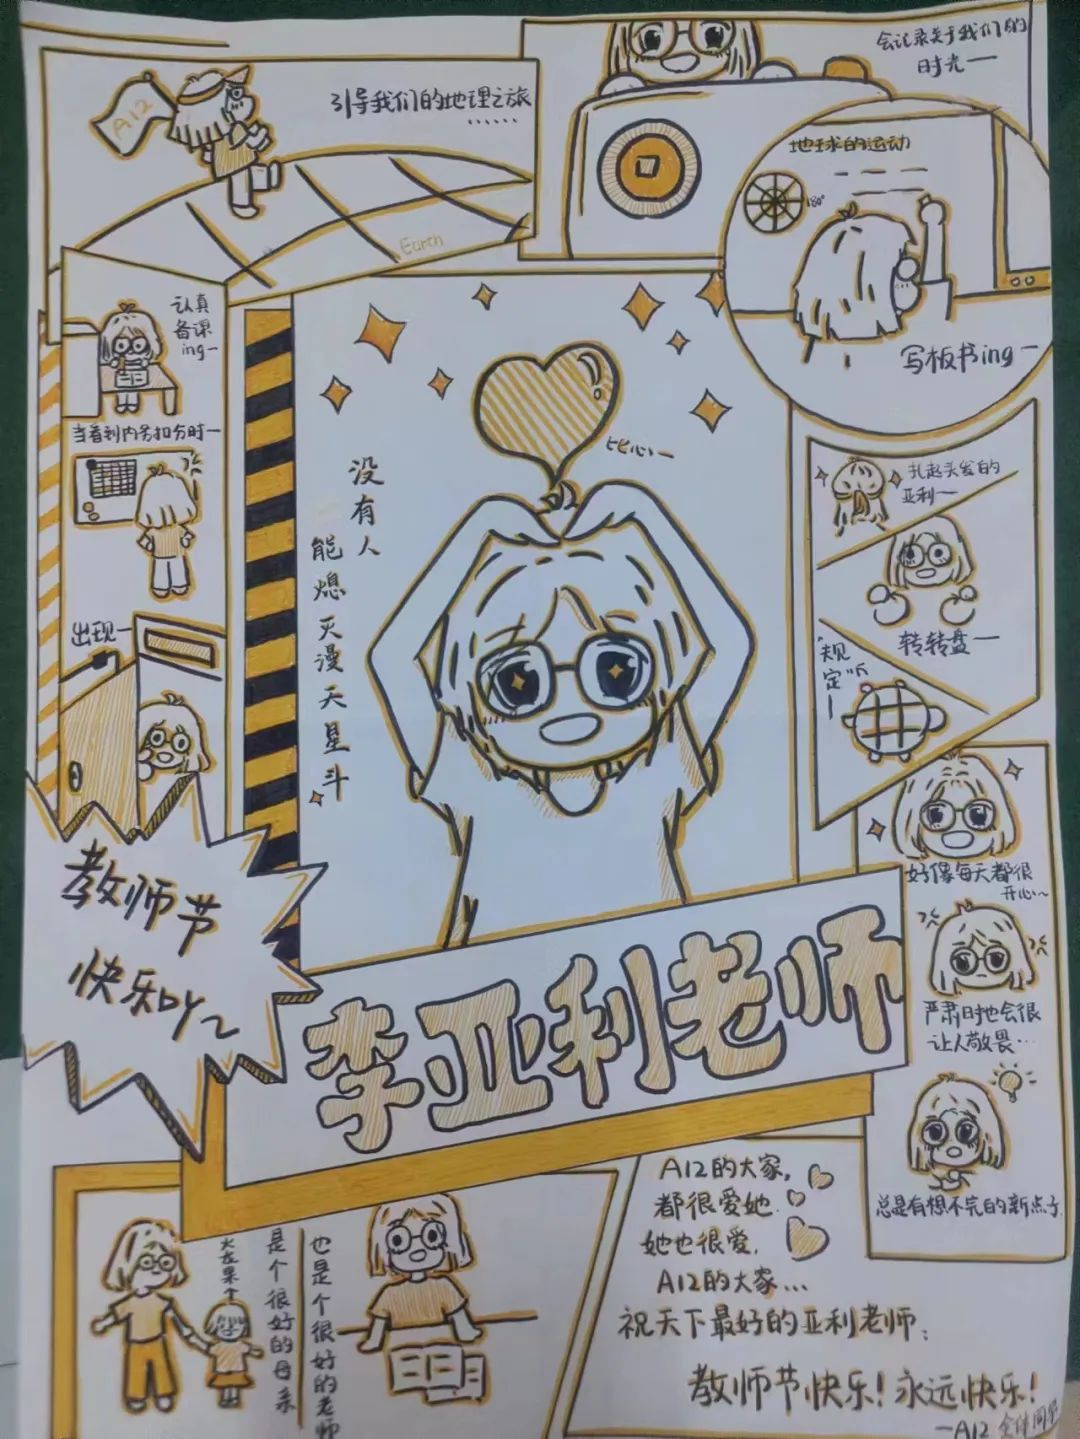 A12
引导我们的地理之旅
......
Earth
会记录关于我们的
时光一
地球的运动
180°
写板书ing一
认真
备课
ing一
当看到内务扣分时一
出现一
没有人
能熄灭漫天星斗
比心一
扎起头发的
亚利一
转转盘一
"规定"
好像每天都很
开心~
严肃时也会很
让人敬畏…
总是有想不完的新点子
教师节
快乐
李亚利老师
是个很好的母亲
也是个很好的老师
A12的大家,
都很爱她.
她也很爱,
A12的大家...
祝天下最好的亚利老师:
教师节快乐!永远快乐!
一A12 全体同学